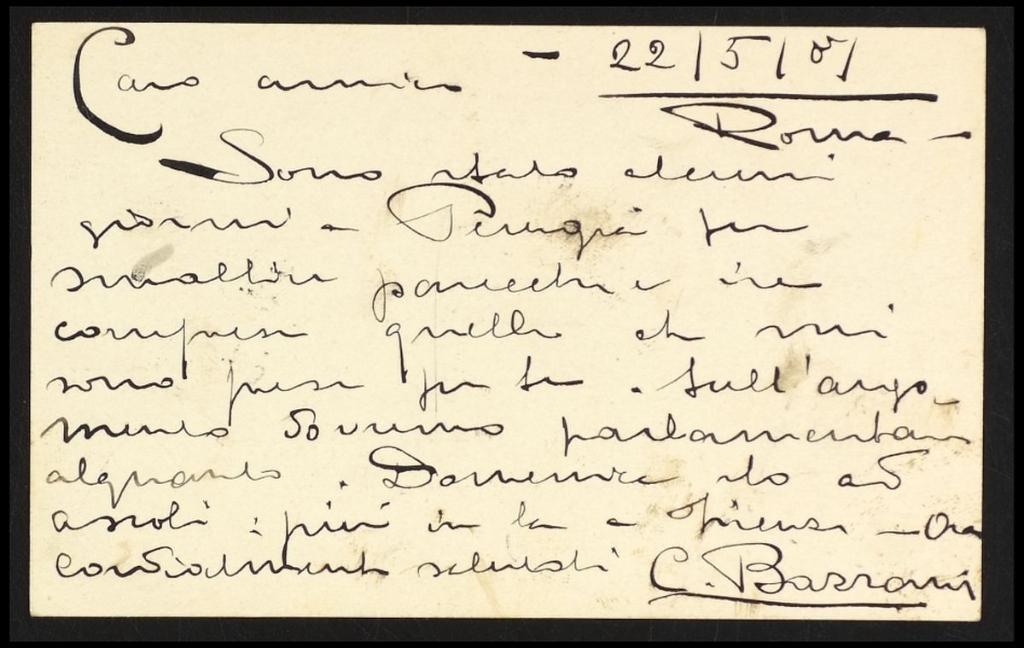 Caro amico - 22/5/07
Roma -
Sono stato alcuni
giorni a Perugia per
smaltire parecchie ire
comprese quelle che mi
sono prese per te. Sull'argo-
mento dovremo parlamentare
alquanto. Domenica sto ad
Ascoli: più in la a Firenze - Ora
cordialmente salutoti C. Bazzani